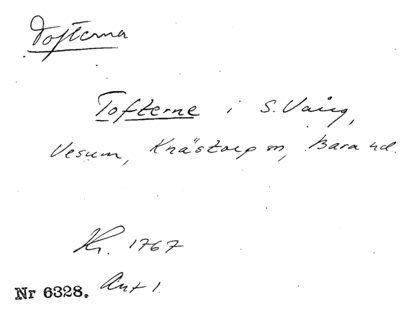 Tofterna
Tofterne i S. Vång,
Vesum, Knästorp sn, Bara hd.
Kr. 1767
Nr 6328. Akt 1.